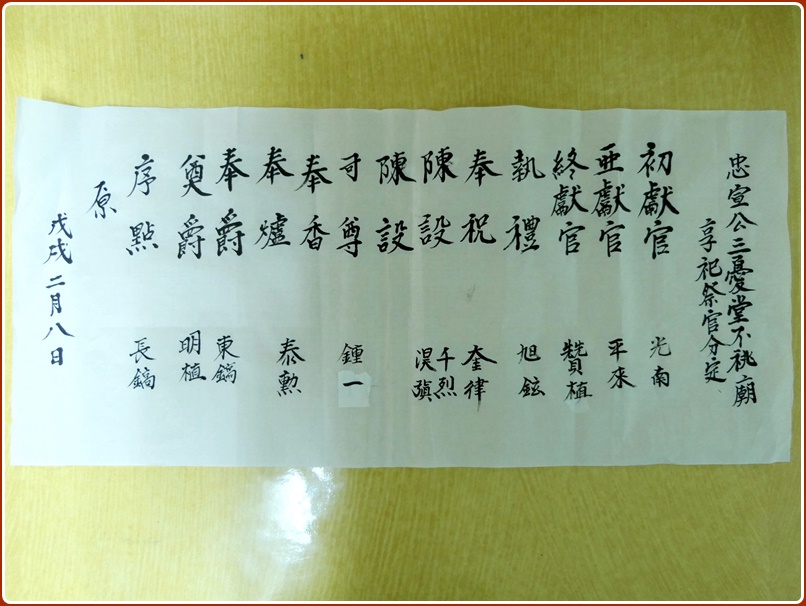 忠宣公三憂堂不祧廟
享祀祭官分定
初獻官 光南
亞獻官 平來
終獻官 贊植
執禮 旭鉉
奉祝 奎律
陳設 千烈
陳設 淏瑱
司尊 鍾一
奉香
奉爐 泰勳
奉爵 東鎬
奠爵 明植
序點 長鎬
原
戊戌二月八日